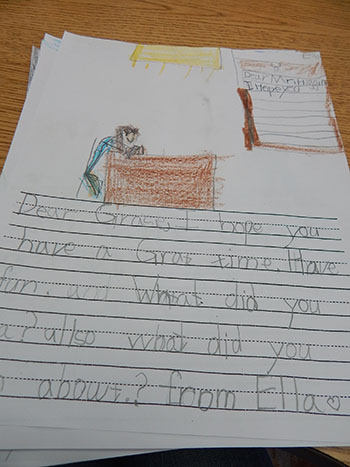 Dear Mr. Higgin
I Hope yo
Dear Gracis I hope you
have a Grat time. Have
fun. and What did you
? allso what did you
about.? from Ella♡